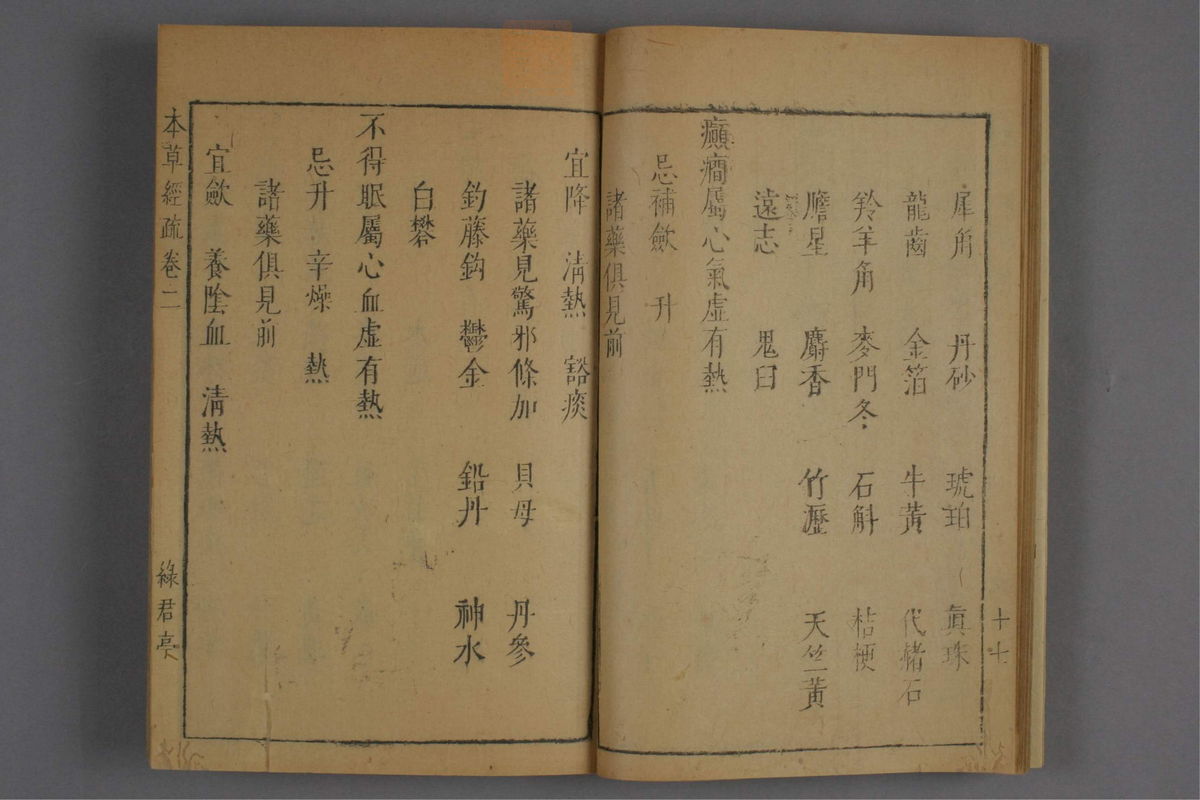 犀角　丹砂　琥珀　眞珠
龍齒　金箔　牛黃　代赭石
羚羊角　麥門冬　石斛　桔梗
膽星　麝香　竹瀝　天竺黃
遠志　鬼臼
癲癎屬心氣虛有熱
忌補斂　升
諸藥俱見前
十七
宜降　淸熱　豁痰
諸藥見驚邪條加　貝母　丹參
釣藤鈎　鬱金　鉛丹　神水
白礬
不得眠屬心血虛有熱
忌升　辛燥　熱
諸藥俱見前
宜斂　養陰血　淸熱
本草經疏　卷二　綠君亭